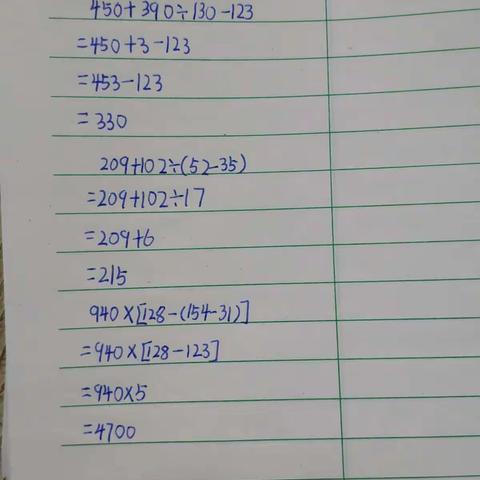 450+390÷130-123
=450+3-123
=453-123
=330
209+102÷(52-35)
=209+102÷17
=209+6
=215
940×[128-(154-31)]
=940×[128-123]
=940×5
=4700